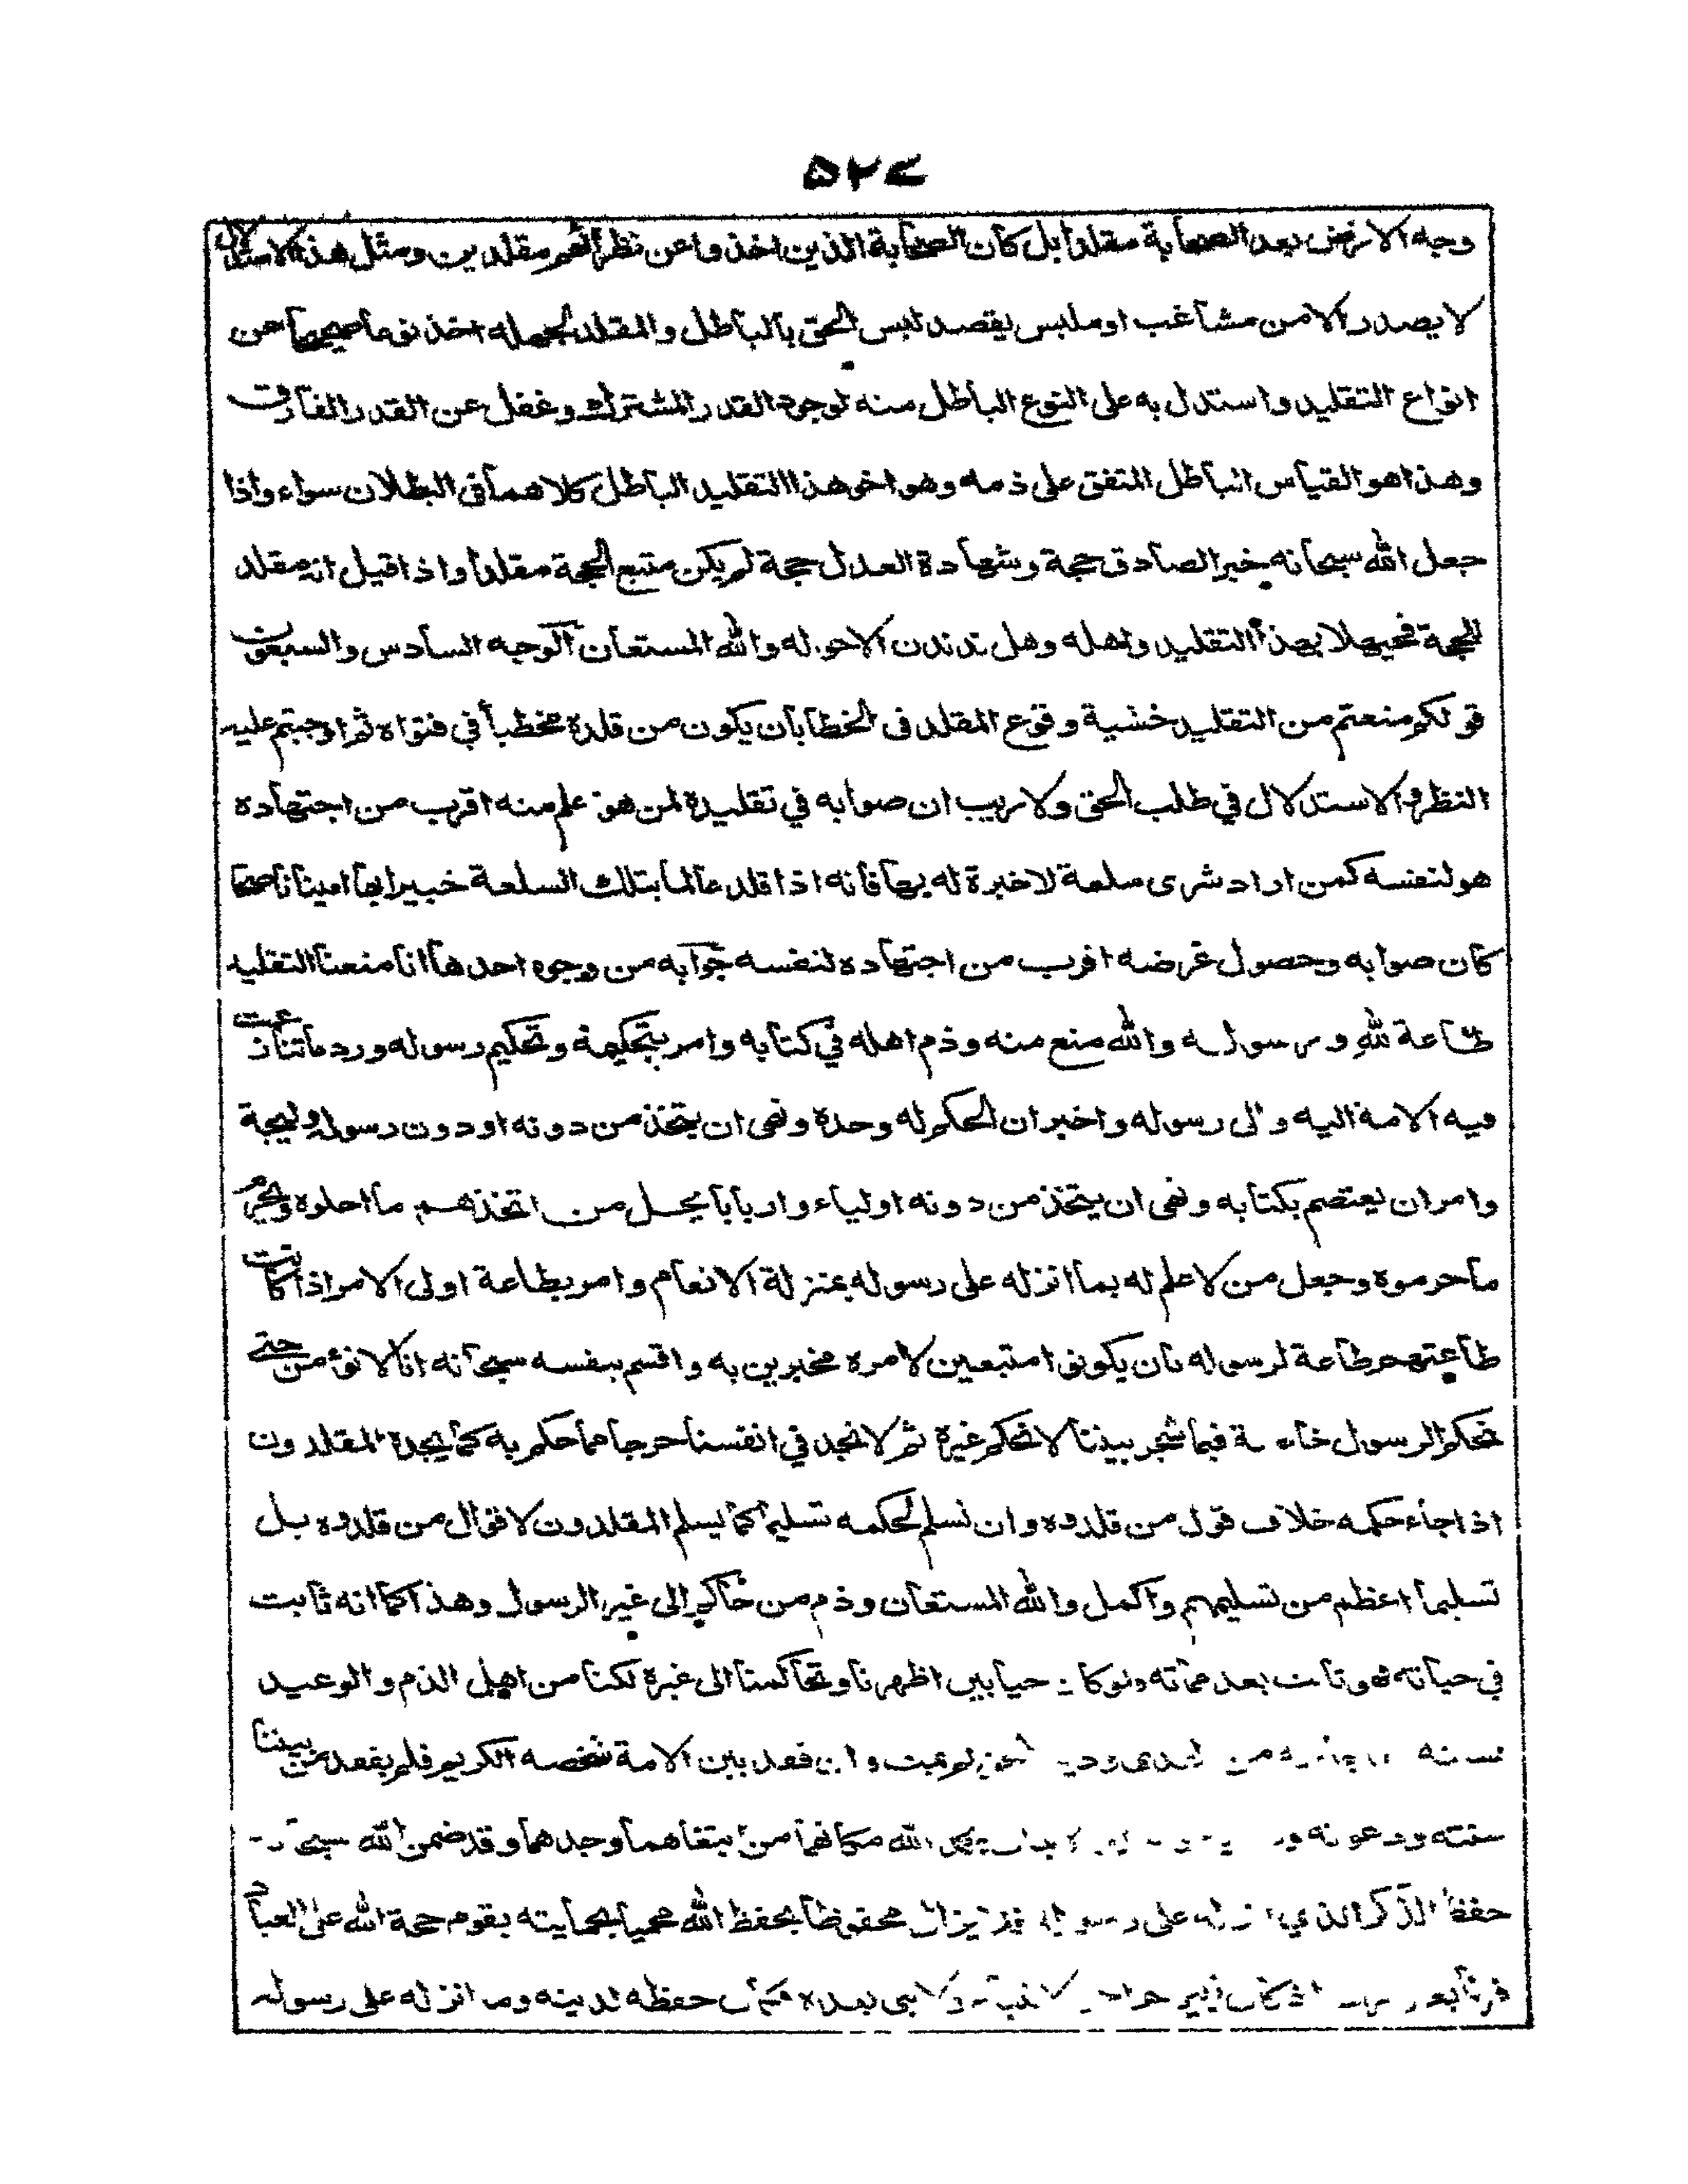 ۵۲۷
وجه الارض بعد الصحابة مقلدا بل كان الصحابة الذين اخذوا عن نظرائهم مقلدين ومثل هذا الاستدلال
لا يصدر الا من مشاغب او ملبس يقصد لبس الحق بالباطل والمقلد لجهله اخذ نوعا صحيحا من
انواع التقليد واستدل به على النوع الباطل منه لوجود القدر المشترك وغفل عن القدر الفارق
وهذا هو القياس الباطل المتفق على ذمه وهو اخو هذا التقليد الباطل كلاهما في البطلان سواء واذا
جعل الله سبحانه خبر الصادق حجة وشهادة العدل حجة لم يكن متبع الحجة مقلدا واذا قيل انه مقلد
للحجة فحيهلا بهذا التقليد واهله وهل ندندن الا حوله والله المستعان الوجه السادس والسبعون
قولكم منعتم من التقليد خشية وقوع المقلد في الخطا بان يكون من قلده مخطيا في فتواه ثم اوجبتم عليه
النظر والاستدلال في طلب الحق ولا ريب ان صوابه في تقليده لمن هو علم منه اقرب من اجتهاده
هو لنفسه كمن اراد شرى سلعة لا خبرة له بها فانه اذا قلد عالما بتلك السلعة خبيرا بها امينا ناصحا
كان صوابه وحصول غرضه اقرب من اجتهاده لنفسه جوابه من وجوه احدها انا منعنا التقليد
طاعة لله ورسوله والله منع منه وذم اهله في كتابه وامر بتحكيمه وتحكيم رسوله ورد ما تنازعت
فيه الامة اليه والى رسوله واخبر ان الحكم له وحده ونهى ان يتخذ من دونه او دون رسوله وليجة
وامر ان يعتصم بكتابه ونهى ان يتخذ من دونه اولياء واربابا يحل من اتخذهم ما احلوه ويحرم
ما حرموه وجعل من لا علم له بما انزله على رسوله بمنزلة الانعام وامر بطاعة اولى الامر اذا كانت
طاعتهم طاعة لرسوله بان يكونوا متبعين لامره مخبرين به واقسم بنفسه سبحانه انا لا نؤمن حتى
نحكم الرسول خاصة فيما شجر بيننا لا نحكم غيره ثم لا نجد في انفسنا حرجا مما حكم به كما يجده المقلدون
اذا جاء حكمه خلاف قول من قلدوه وان نسلم لحكمه تسليما كما يسلم المقلدون لاقوال من قلدوه بل
تسليما اعظم من تسليمهم واكمل والله المستعان وذم من حاكم الى غير الرسول وهذا كما انه ثابت
في حياته فهو ثابت بعد مماته ولو كان حيا بين اظهرنا وتحاكمنا الى غيره لكنا من اهل الذم والوعيد
من الهدى ودين الحق لم يمت وان فقد بين الامة شخصه الكريم فلم يفقد من بيننا
سنته ودعوته الله مكانهما من ابتغاهما وجدهما وقد ضمن الله
حفظ الذكر الذي انزله على رسوله فلا يزال محفوظا بحفظ الله محميا بحمايته بقوم حجة الله على العباد
بعده فكان حفظه لدينه وما انزله على رسوله